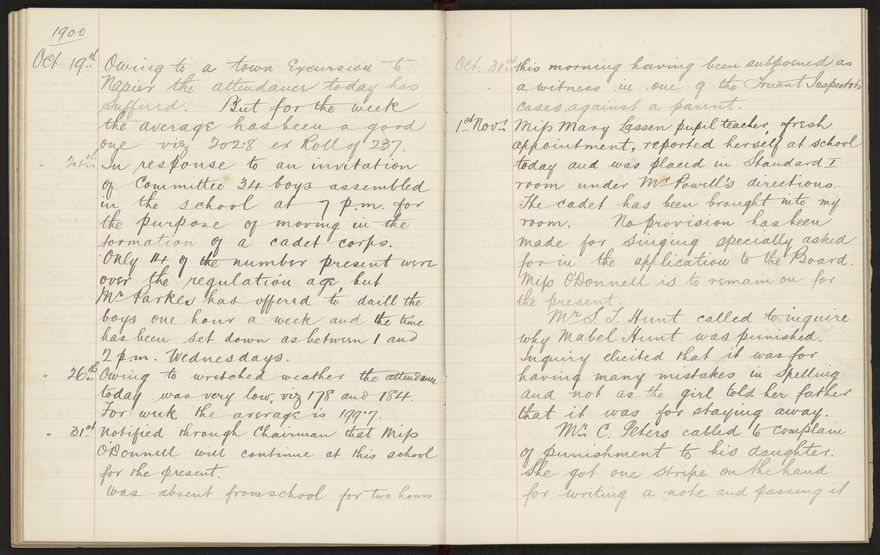 1900
Oct 19th Owing to a town Excursion to
Napier the attendance today has
suffered. But for the week
the average has been a good
one viz 202.8 ex Roll of 237.
" 24th In response to an invitation
of Committee 34 boys assembled
in the school at 7 p.m. for
the purpose of moving in the
formation of a cadet corps.
Only 14 of the number present were
over the regulation age but
Mr Parker has offered to drill the
boys one hour a week and the time
has been set down as between 1 and
2 p.m. Wednesdays.
" 26th Owing to wretched weather the attendance
today was very low, viz 178 and 184.
For week the average is 199.7.
" 31st Notified through Chairman that Miss
O'Donnell will continue at this school
for the present.
Was absent from school for two hours
Oct. 31st this morning having been subpoened as
a witness in one of the Truant Inspector's
cases against a parent.
1st Nov. Miss Mary Lassen pupil teacher, fresh
appointment, reported herself at school
today and was placed in Standard I
room under Mr Powell's directions.
The cadet has been brought into my
room. No provision has been
made for Singing specially asked
for in the application to the Board.
Miss O'Donnell is to remain on for
the present.
Mr S. J. Hunt called to inquire
why Mabel Hunt was punished.
Inquiry elicited that it was for
having many mistakes in Spelling
and not as the girl told her father
that it was for staying away.
Mr C. Peters called to complain
of punishment to his daughter.
She got one stripe on the hand
for writing a note and passing it